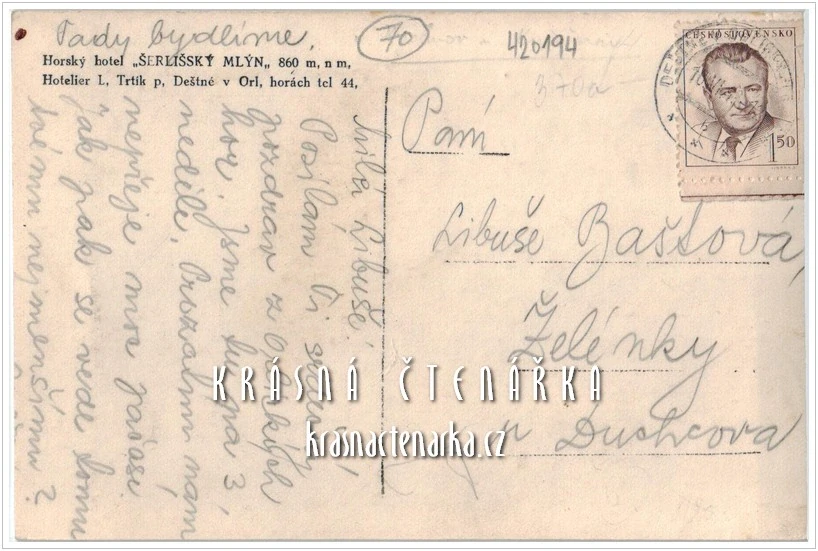 Tady bydlíme.
Horský hotel „ŠERLIŠSKÝ MLÝN„ 860 m, n m,
Hotelier L, Trtík p, Deštné v Orl, horách tel 44,
70
420194
370a
ČESKOSLOVENSKO
1.50
milá Libuše!
Posílám Ti srdečný
pozdrav z Orlických
hor. Jsme tu na 3
neděle. Prozatím nám
nepřeje moc počasí
jak pak se vede tomu
tvému nejmenšímu?
Paní
Libuše Baštová,
Želénky
u Duchcova
KRÁSNÁ ČTENÁŘKA
krasnactenarka.cz